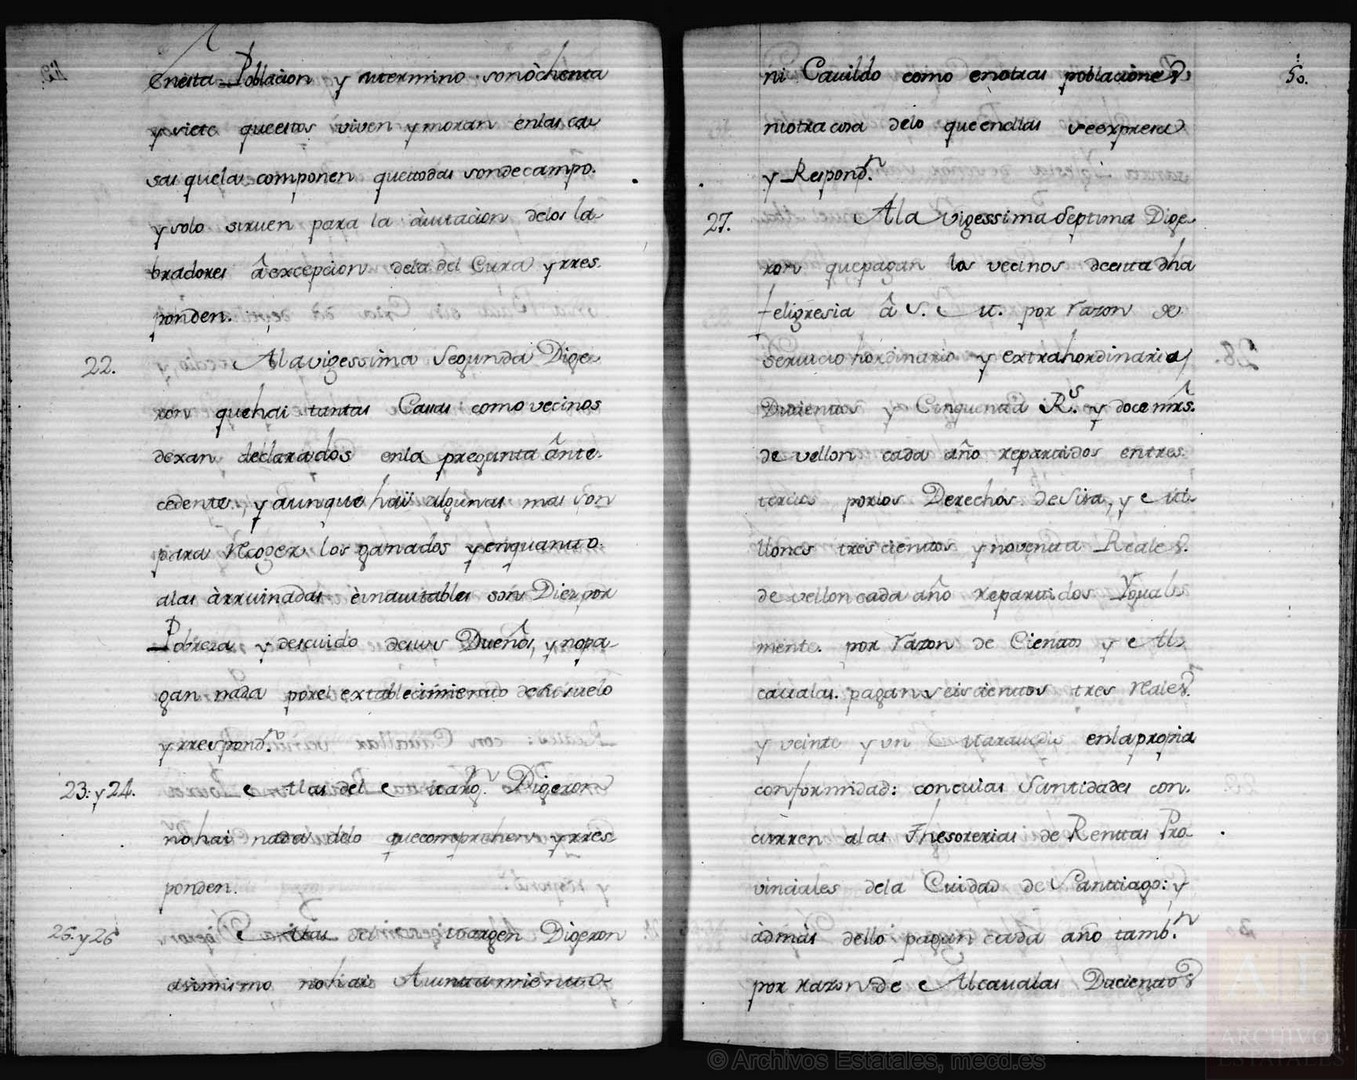 enesta Poblacion y sutermino son ochenta
y siete queestos viven y moran enlas ca-
sas quelas componen quetodas sondecampo.
y solo siruen para la auitacion delos la-
bradores â excepcion dela del Cura y rres-
ponden.
22. Ala vigessima Segunda Dige-
ron quehai tantas Casas como vecinos
dexan declarados enla pregunta ânte-
cedente y aunque haii algunas mas son
para Recoger los ganados y enquanto
alas àrruinadas è inauitables son Diez por
Pobreza y descuido desus Dueños, y nopa-
gan nada porel extablecimiento del suelo
y rrespond.n
23: y 24. Alas del Marg.n Digeron
no hai nada delo quecomprehen y rres
ponden.
25. y 26 Aestas del Margen Digeron
asimismo nohai Auntamiento
50.
ni Cauildo como enotras poblaciones,
niotra cosa delo que enellas seexpresa
y Respond.n
27. Ala vigessima Septima Dige
ron quepagan los vecinos deesta dha
feligresia â S. M. por razon de
seruicio hordinario y extrahordinario
Ducientos y Cinquenta R.s y doce mrs.
de vellon cada año repartidos entres
tercios porlos Derechos de Sisa, y Mi-
llones trescientos y noventa Reales.
de vellon cada año repartidos Ygual-
mente. por razon de Cientos y Al-
caualas. pagan seiscientos tres reales.
y veinte y un Marauedis enla propia
conformidad: conculas Cantidades con-
curren alas Thesorerias de Rentas Pro-
vinciales dela Cuidad de Santiago: y
àdmàs dello pagan cada año tamb.n
por razon de Alcaualas Ducientos
© Archivos Estatales, mecd.es
ARCHIVOS
ESTATALES